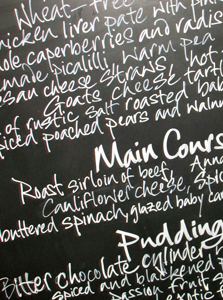 Wheat-free
chicken liver pate with
whole caperberries and radis
made picalilli, warm pea
cheese straws hot
Goats cheese tart
of rustic salt roasted bab
spiced poached pears and waln
Main Cours
Roast sirloin of beef,
Cauliflower cheese,
buttered spinach, glazed baby ca
Pudding
Bitter chocolate cylinder
spiced and blackened
passion fruit